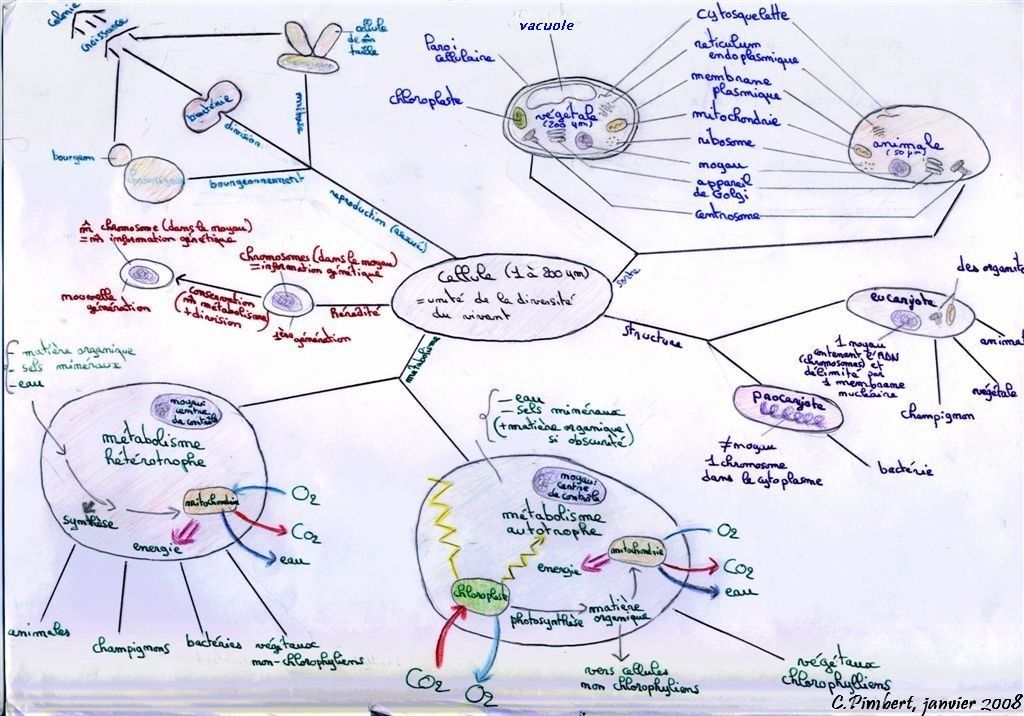 colonie
croissance
cellule
de m̂
taille
mitose
bactérie
division
bourgeon
bourgeonnement
reproduction (asexuée)
vacuole
Paroi
cellulaire
chloroplaste
végétale
(200 µm)
cytosquelette
réticulum
endoplasmique
membrane
plasmique
mitochondrie
ribosome
noyau
appareil
de Golgi
centrosome
animale
(50 µm)
m̂ chromosome (dans le noyau)
= m̂ information génétique
nouvelle
génération
conservation
(m̂ métabolisme)
+ division
chromosomes (dans le noyau)
= information génétique
1ère génération
hérédité
Cellule (1 à 200 µm)
= unité de la diversité
du vivant
sorte
structure
métabolisme
eucaryote
des organite
1 noyau
contenant l'ADN
(chromosomes) et
délimité par
1 membrane
nucléaire
animal
végétale
champignon
procaryote
≠ noyau
1 chromosome
dans le cytoplasme
bactérie
- matière organique
- sels minéraux
- eau
noyau:
centre
de contrôle
métabolisme
hétérotrophe
synthèse
mitochondrie
energie
O2
CO2
eau
animales
champignons
bactéries
végétaux
non-chlorophyliens
- eau
- sels minéraux
(+ matière organique)
si obscurité
noyau:
centre
de contrôle
métabolisme
autotrophe
energie
mitochondrie
O2
CO2
eau
chloroplaste
photosynthèse
matière
organique
CO2
O2
vers cellules
non chlorophyliens
végétaux
chlorophylliens
C.Pimbert, janvier 2008